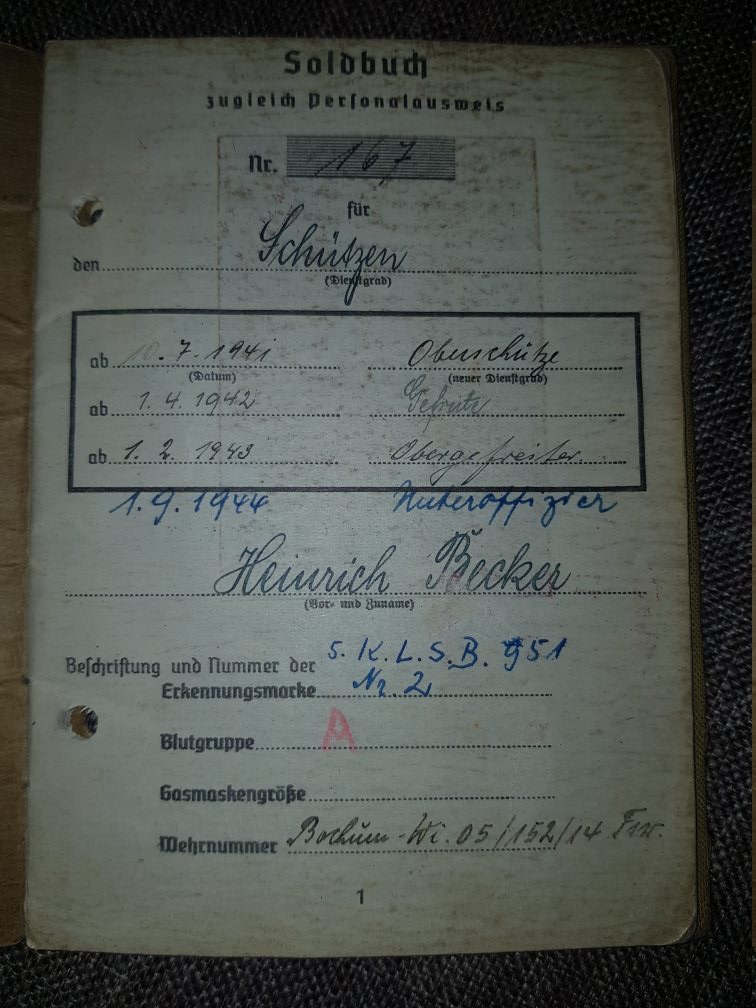 Soldbuch
zugleich Personalausweis
Nr. 167
für
den Schützen
(Dienstgrad)
ab 10.7.1941 Oberschütze
(Datum) (neuer Dienstgrad)
ab 1.4.1942 Gefreite
ab 1.2.1943 Obergefreiter.
1.9.1944 Unteroffizier
Heinrich Becker
(Vor- und Zuname)
Beschriftung und Nummer der 5. K.L.S.B. 951
Erkennungsmarke Nr. 2
Blutgruppe A
Gasmaskengröße
Wehrnummer Bochum-Wi. 05/152/14
1